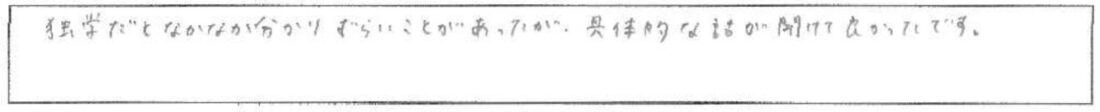 独学だとなかなか分かりずらいことがあったが、具体的な話が聞けて良かったです。